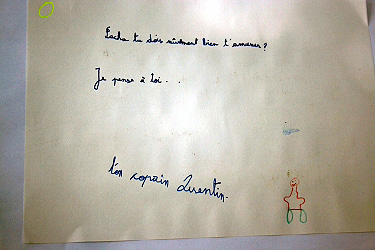 Sacha tu dois sûrement bien t'amuser?
Je pense à toi...
ton copain Quentin.